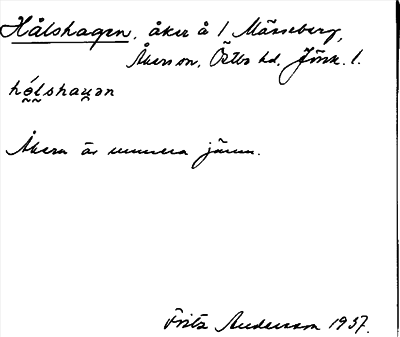 Hålshagen, åker å 1 Mässeberg,
Åkers sn, Östbo hd, Jönk. l.
hó̰l̰shaṵən
Åkern är numera jämn.
Fritz Andersson 1937.